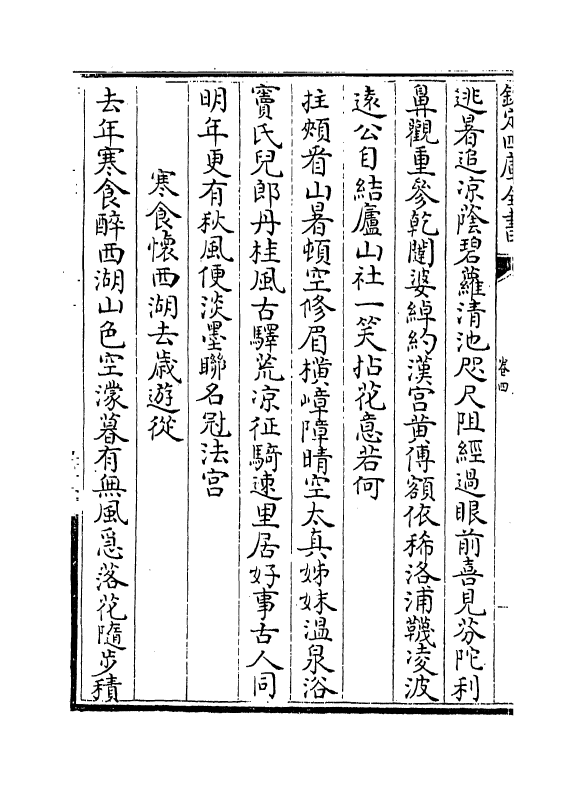 欽定四庫全書
卷四
逃暑追凉蔭碧蘿清池咫尺阻經過眼前喜見芬陀利
鼻觀重參乾闥婆綽約漢宫黄傅額依稀洛浦韈凌波
遠公自結廬山社一笑拈花意若何
拄頰看山暑頓空修眉横嶂障晴空太真姊妹温泉浴
竇氏兒郎丹桂風古驛荒凉征騎速里居好事古人同
明年更有秋風便淡墨聯名冠法宫
寒食懷西湖去歲遊從
去年寒食醉西湖山色空濛暮有無風急落花隨步積